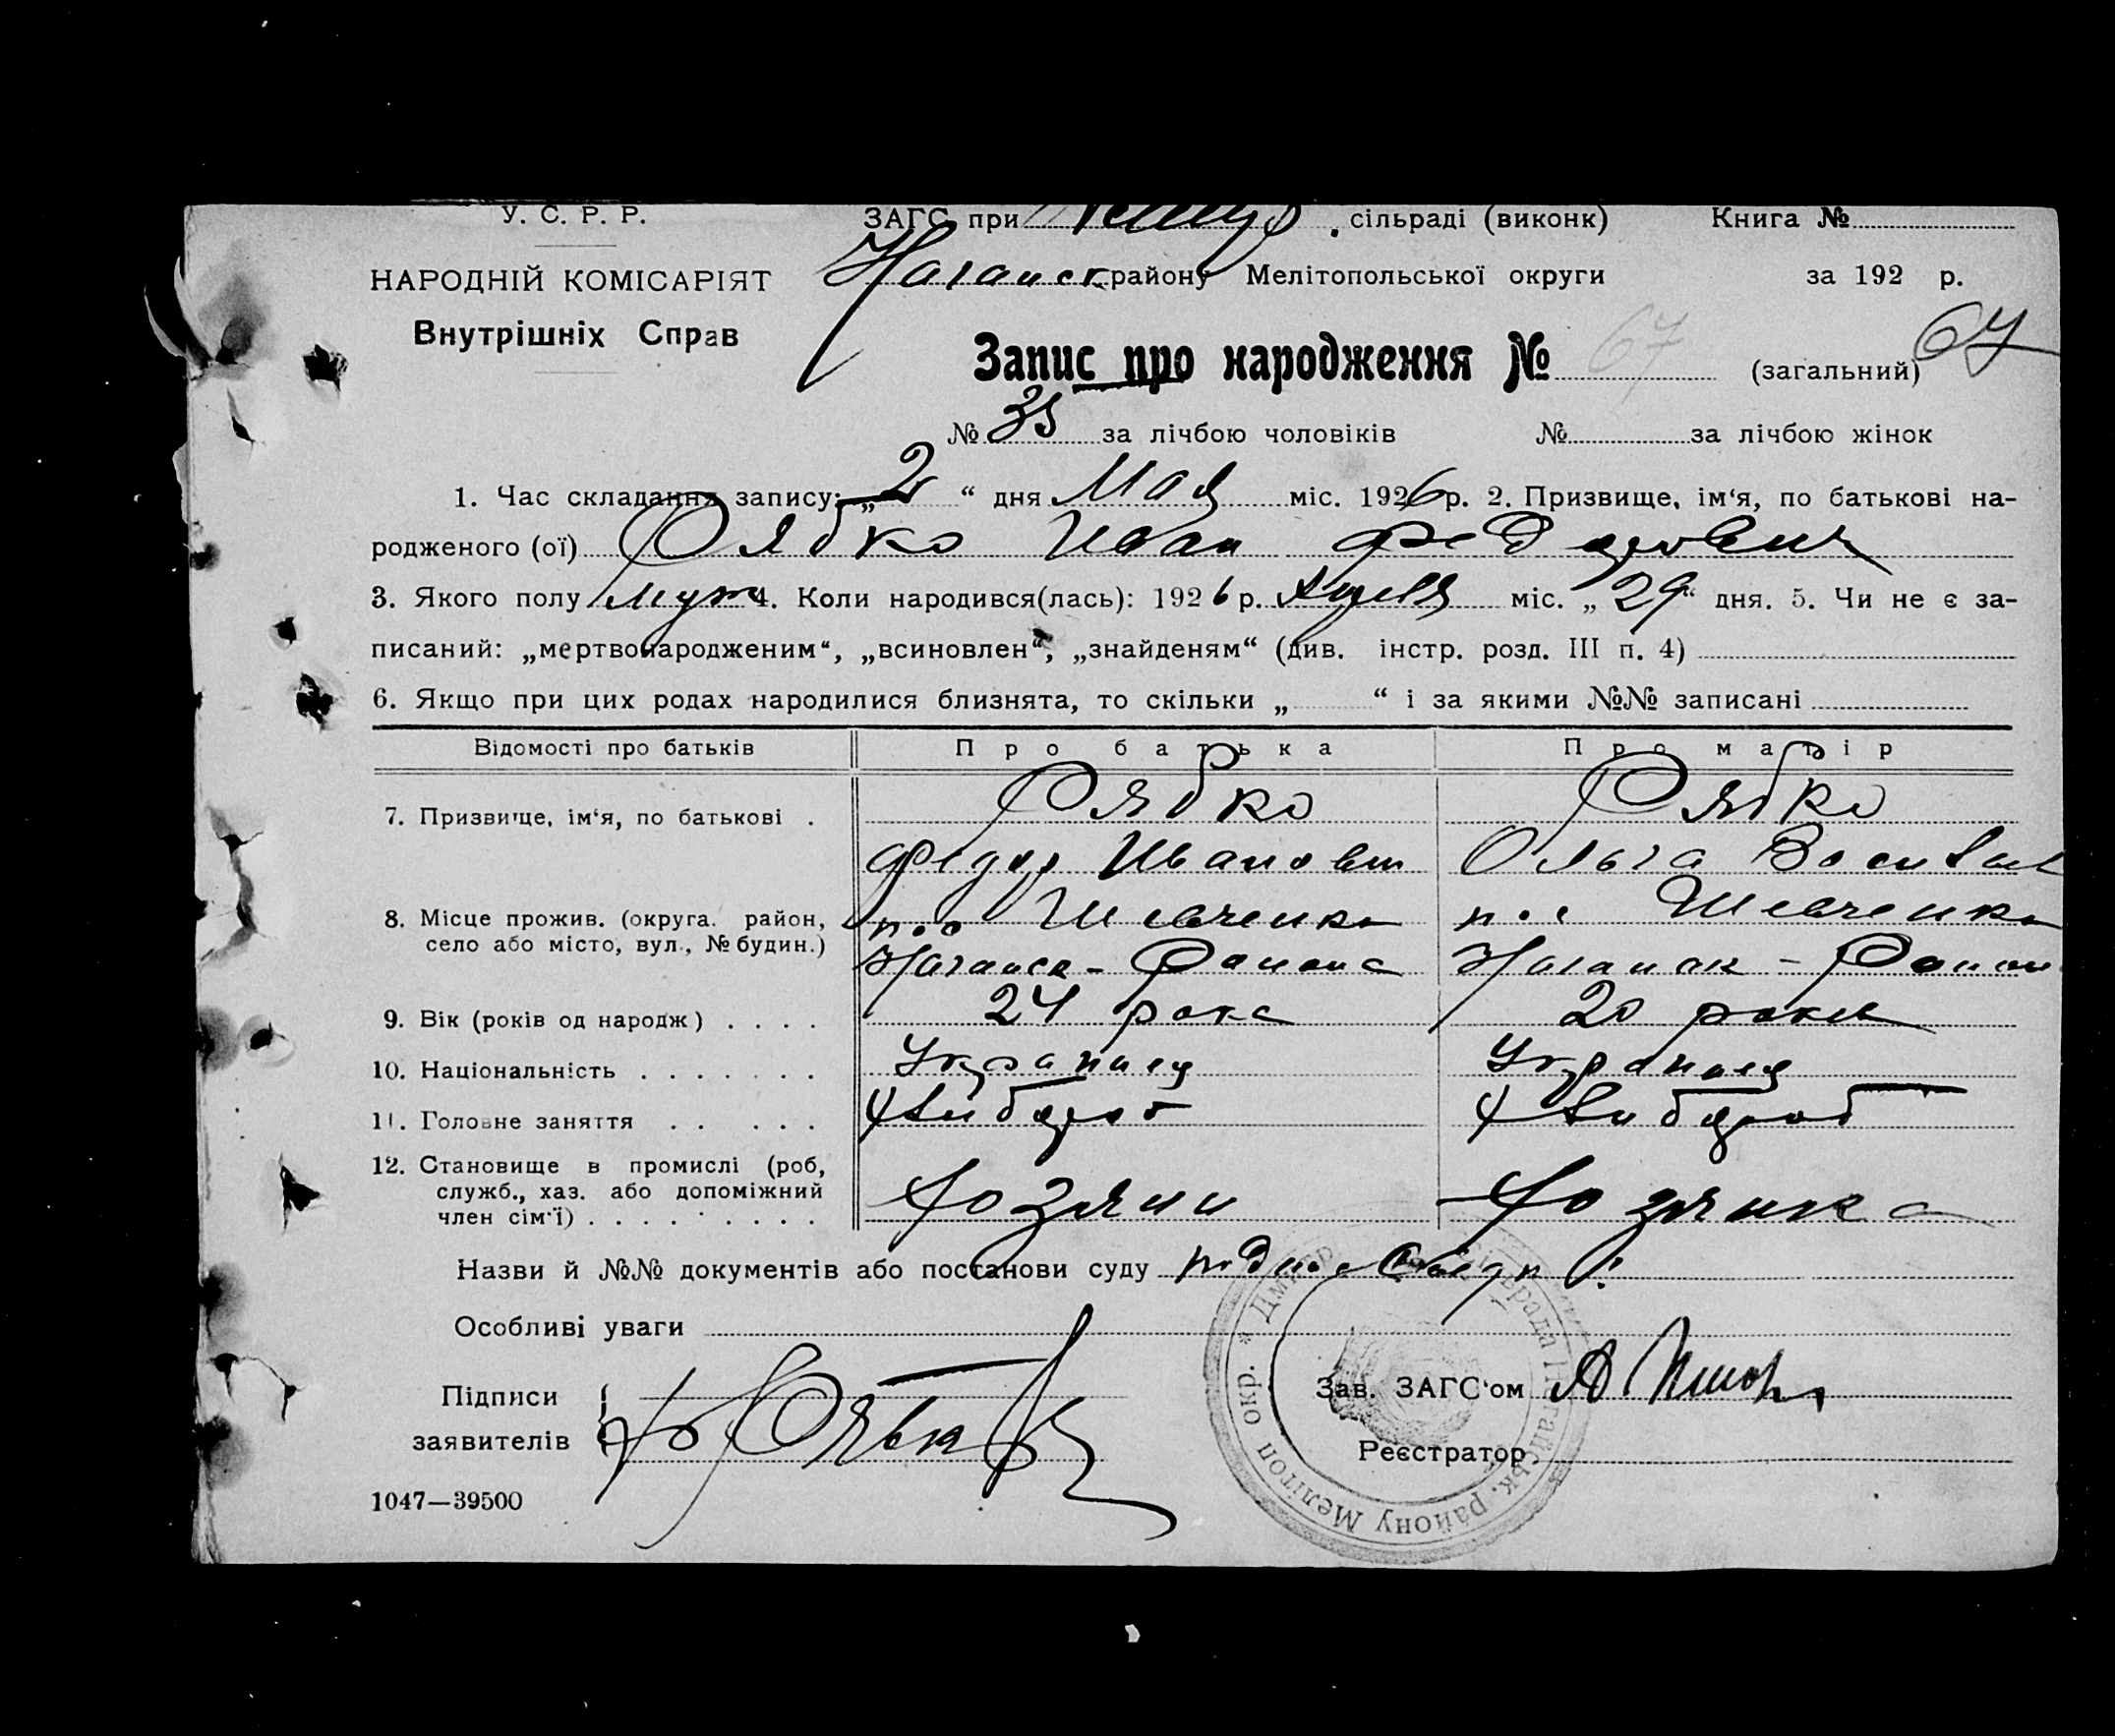 У. С. Р. Р.
НАРОДНІЙ КОМІСАРІЯТ
Внутрішніх Справ
ЗАГС при сільраді (виконк)
Ногайск району Мелітопольської округи
Книга №
за 192 р.
Запис про народження № 67 (загальний) 67
№ 35 за лічбою чоловіків № за лічбою жінок
1. Час складання запису: „ 2 “ дня Мая міс. 1926 р. 2. Призвище, ім‘я, по батькові на-
родженого (ої) Рябко Иван Федорович
3. Якого полу муж 4. Коли народився(лась): 1926 р. Апреля міс. „ 29 “ дня. 5. Чи не є за-
писаний: „мертвонародженим“, „всиновлен“, „знайденям“ (див. інстр. розд. III п. 4)
6. Якщо при цих родах народилися близнята, то скільки „ “ і за якими №№ записані
Відомості про батьків Про батька Про матір
7. Призвище, ім‘я, по батькові . Рябко Рябко
Федор Иванович Ольга Васильев
8. Місце прожив. (округа. район, пос Шевченко пос Шевченко
село або місто, вул., № будин.) Ногайск - Района Ногайск - Район
9. Вік (років од народж) . . . . 24 рока 20 роки
10. Національність . . . . . . . Украинец Украинец
11. Головне заняття . . . . . Хлибороб Хлибороб
12. Становище в промислі (роб, Хозяин Хозяйка
служб., хаз. або допоміжний
член сім‘ї) . . . . . . . . .
Назви й №№ документів або постанови суду
Особливі уваги
Підписи
заявителів Рябка
Зав. ЗАГС‘ом
Реєстратор
району Мелітоп окр. * Дмитр
1047—39500